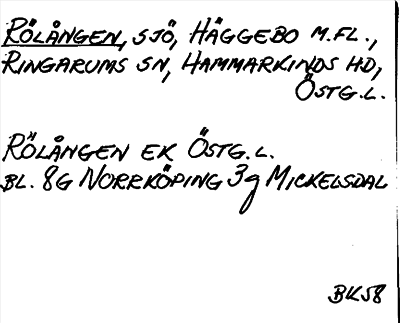 RÖLÅNGEN, SJÖ, HÄGGEBO M.FL.,
RINGARUMS SN, HAMMARKINDS HD,
ÖSTG.L.
RÖLÅNGEN EK ÖSTG.L.
BL. 8G NORRKÖPING 3g MICKELSDAL
BK58